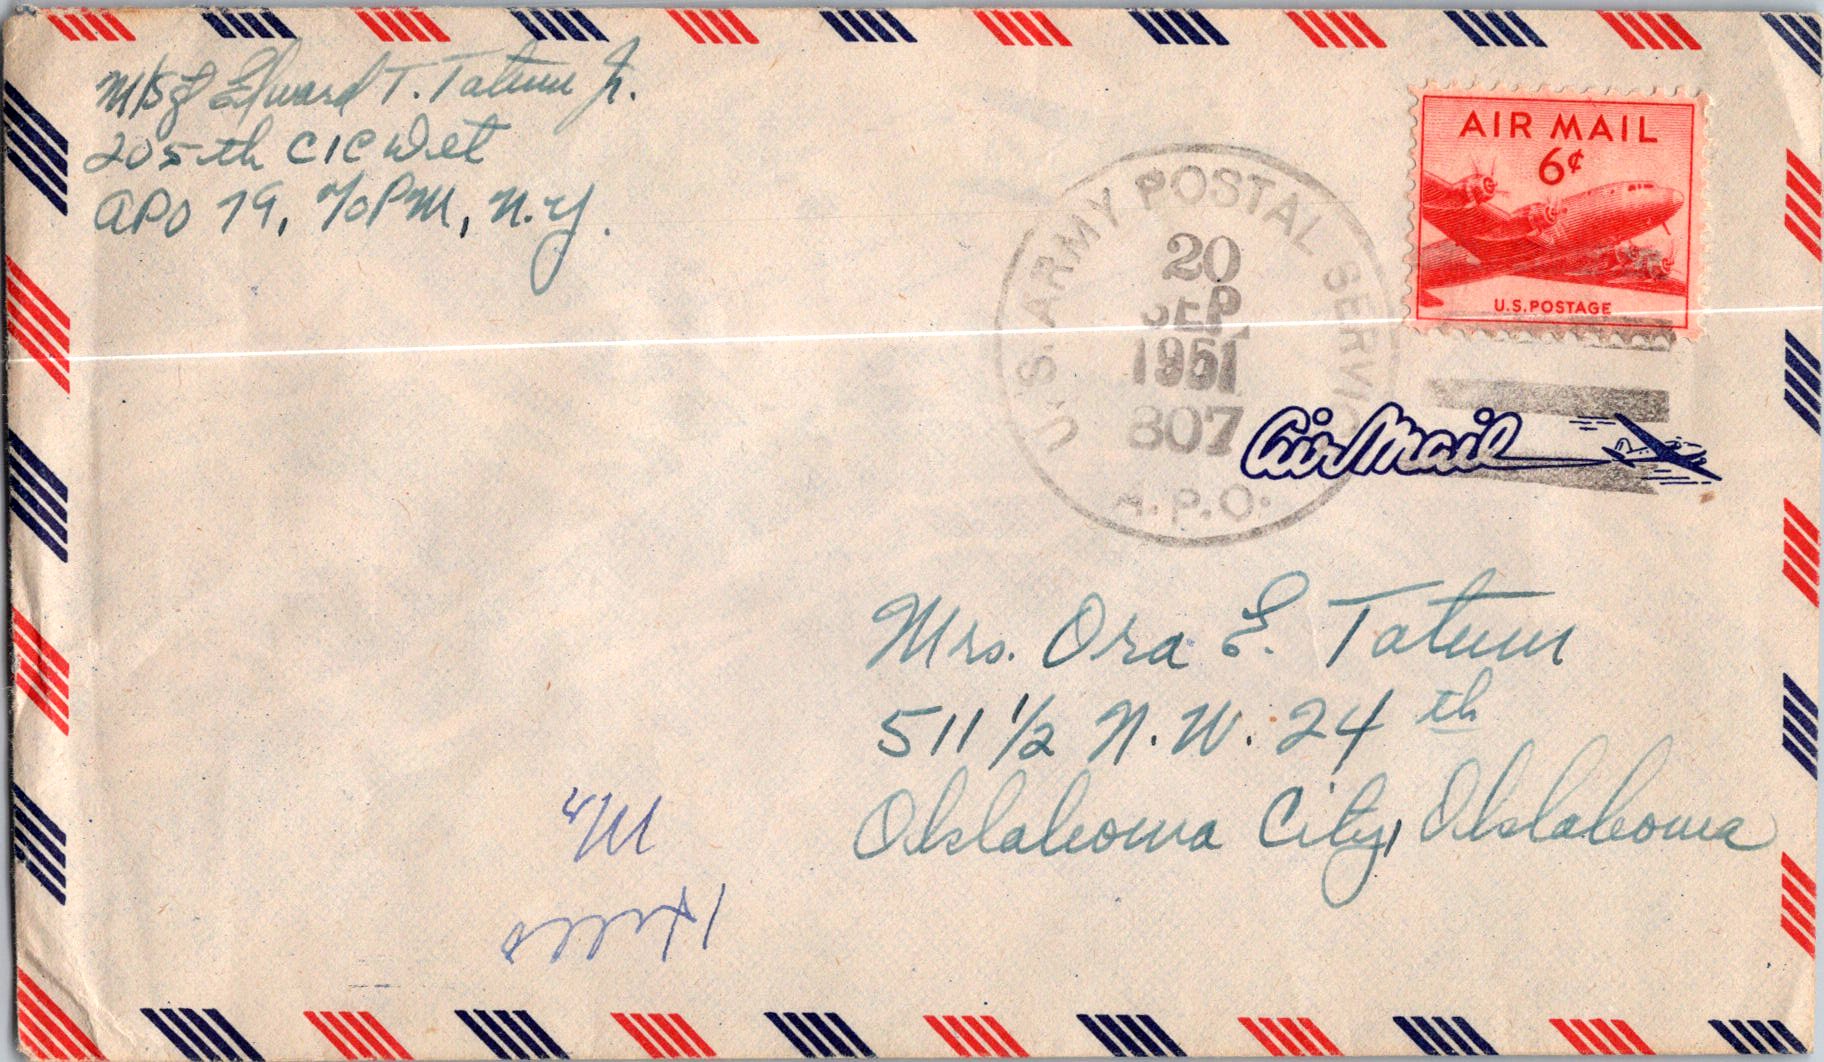 M/Sgt Edward T. Tatum Jr.
205th CIC Det
APO 79, c/o PM, N.Y.
AIR MAIL
6¢
U.S. POSTAGE
U.S. ARMY POSTAL SERVICE
20
SEP
1951
807
A.P.O.
Air Mail
Mrs. Ora E. Tatum
511 1/2 N.W. 24th
Oklahoma City, Oklahoma